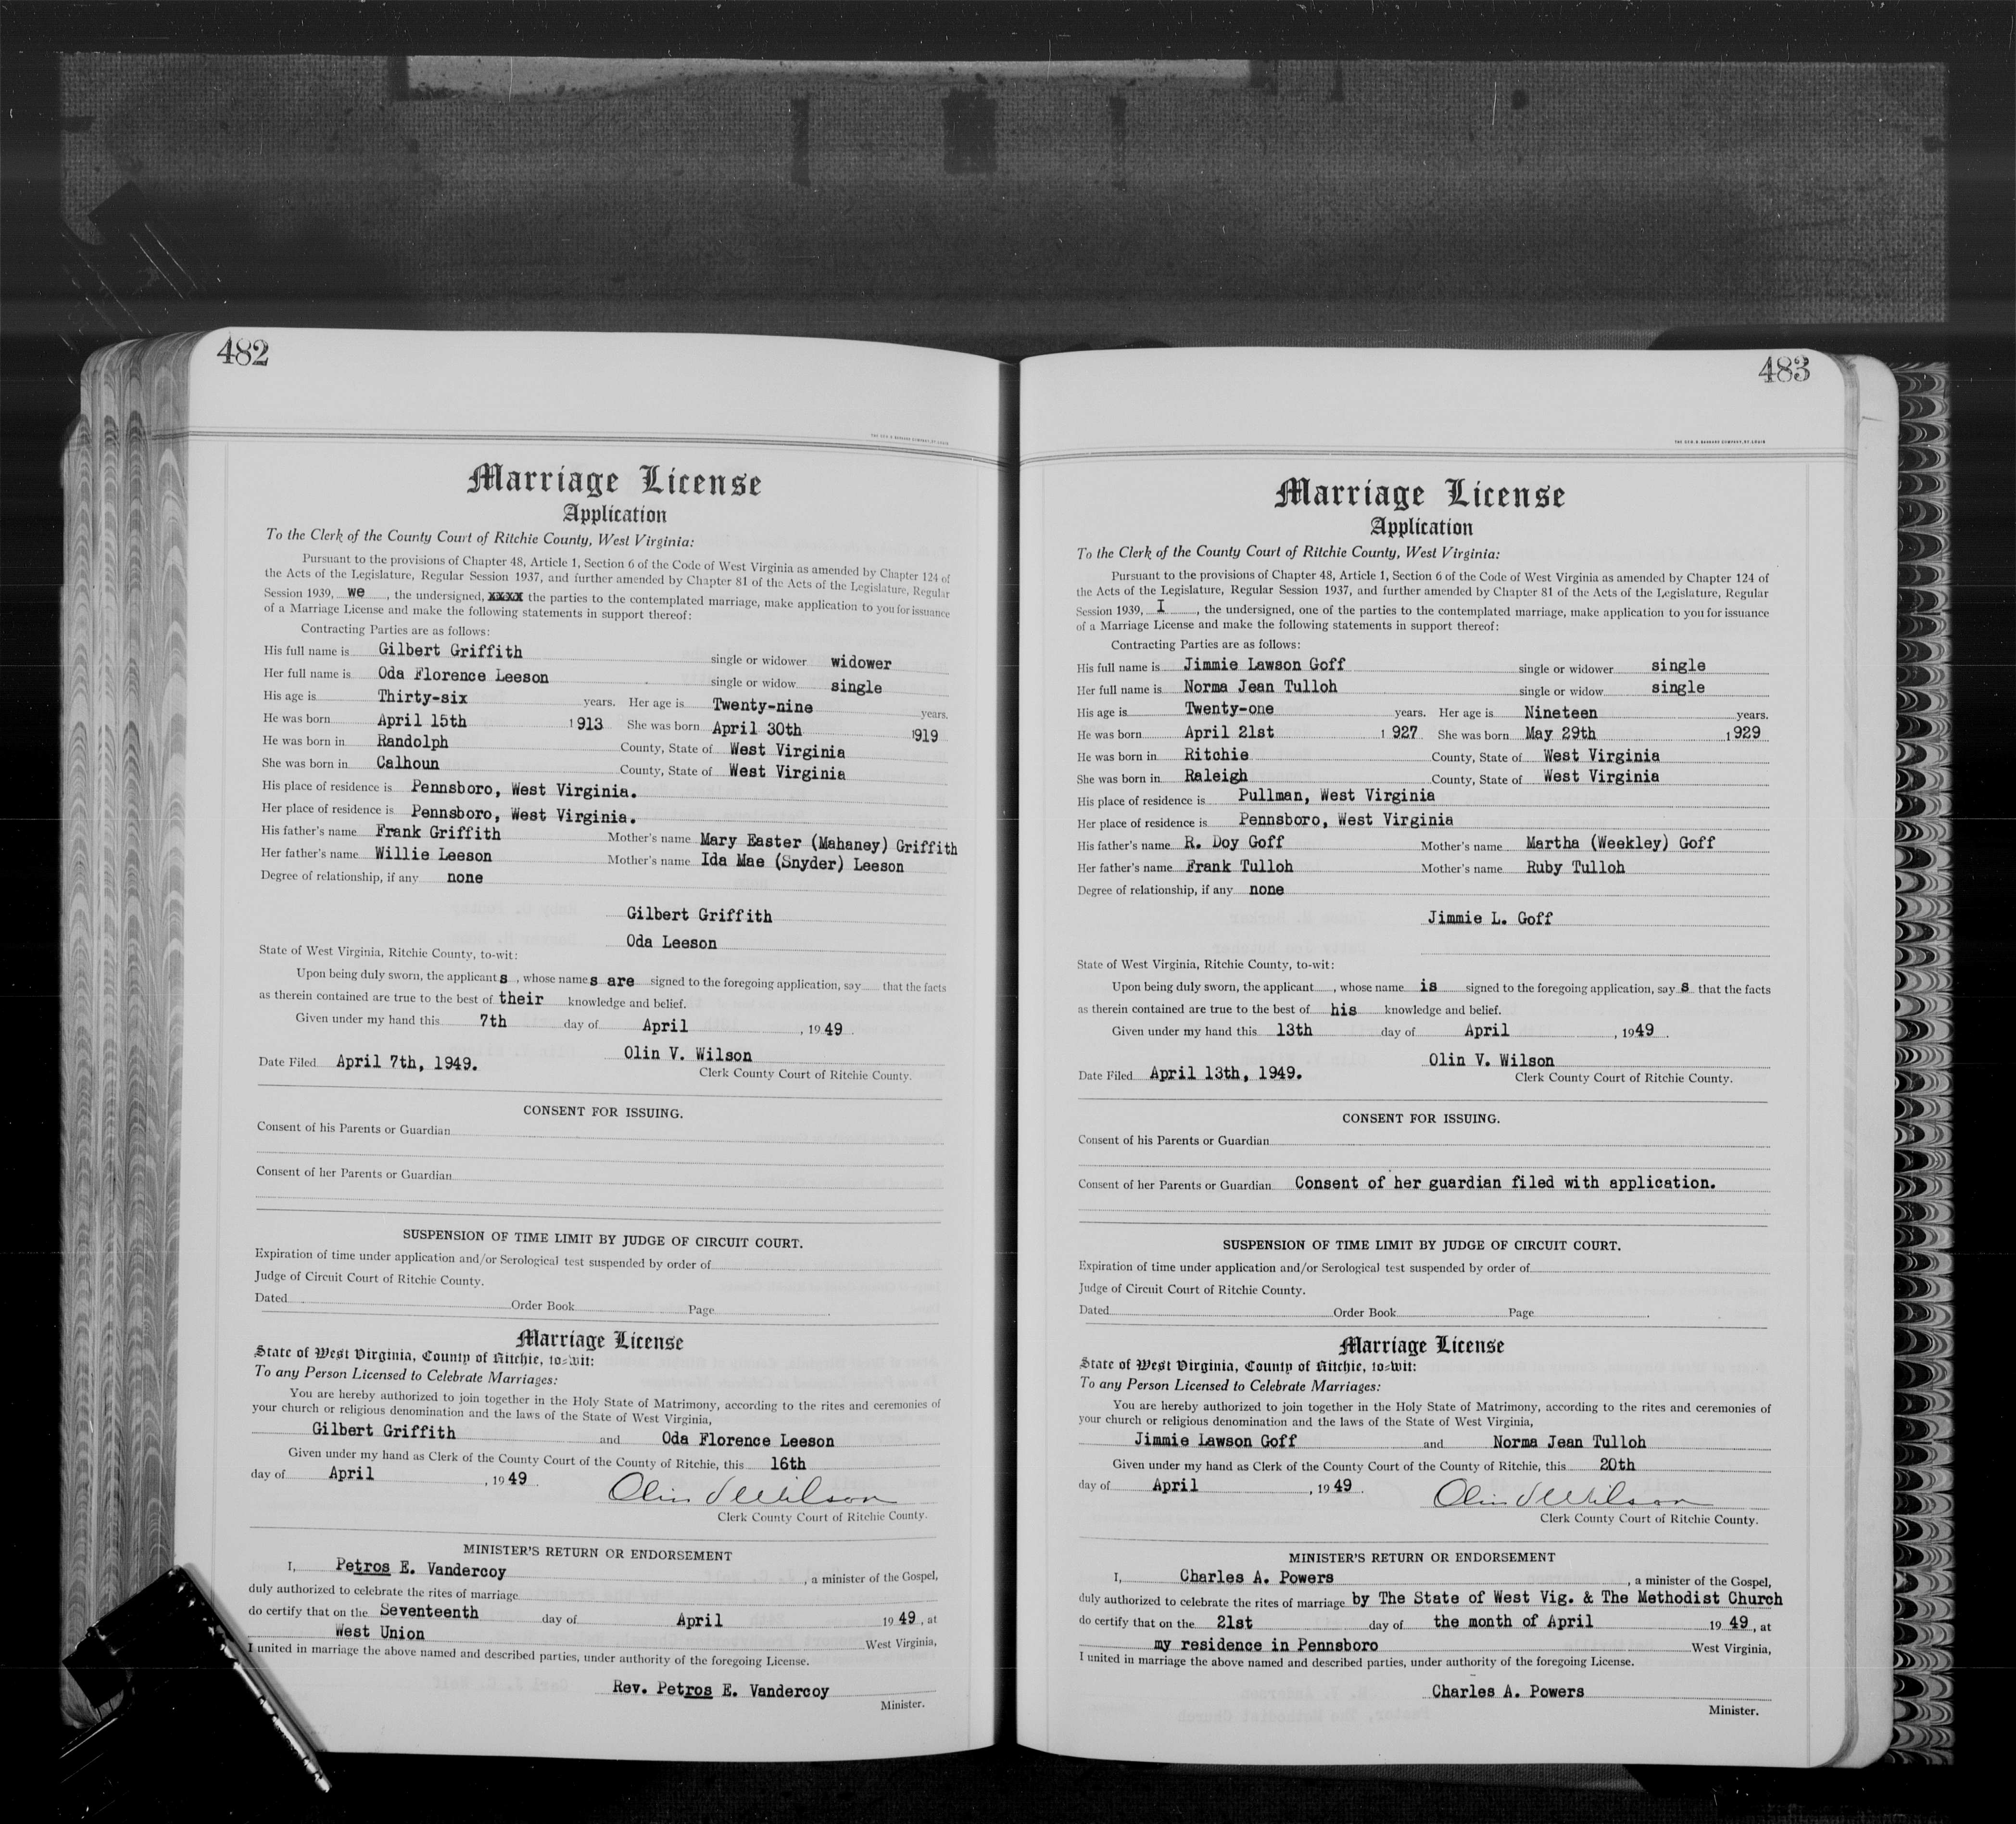 482
THE GEO. D. BARNARD COMPANY, ST. LOUIS
Marriage License
Application
To the Clerk of the County Court of Ritchie County, West Virginia:
Pursuant to the provisions of Chapter 48, Article 1, Section 6 of the Code of West Virginia as amended by Chapter 124 of
the Acts of the Legislature, Regular Session 1937, and further amended by Chapter 81 of the Acts of the Legislature, Regular
Session 1939, we, the undersigned, xxxx the parties to the contemplated marriage, make application to you for issuance
of a Marriage License and make the following statements in support thereof:
Contracting Parties are as follows:
His full name is Gilbert Griffith single or widower widower
Her full name is Oda Florence Leeson single or widow single
His age is Thirty-six years. Her age is Twenty-nine years.
He was born April 15th 1913 She was born April 30th 1919
He was born in Randolph County, State of West Virginia
She was born in Calhoun County, State of West Virginia
His place of residence is Pennsboro, West Virginia.
Her place of residence is Pennsboro, West Virginia.
His father's name Frank Griffith Mother's name Mary Easter (Mahaney) Griffith
Her father's name Willie Leeson Mother's name Ida Mae (Snyder) Leeson
Degree of relationship, if any none
Gilbert Griffith
Oda Leeson
State of West Virginia, Ritchie County, to-wit:
Upon being duly sworn, the applicants, whose names are signed to the foregoing application, say that the facts
as therein contained are true to the best of their knowledge and belief.
Given under my hand this 7th day of April, 1949.
Olin V. Wilson
Date Filed April 7th, 1949. Clerk County Court of Ritchie County.
CONSENT FOR ISSUING.
Consent of his Parents or Guardian
Consent of her Parents or Guardian
SUSPENSION OF TIME LIMIT BY JUDGE OF CIRCUIT COURT.
Expiration of time under application and/or Serological test suspended by order of
Judge of Circuit Court of Ritchie County.
Dated Order Book Page.
Marriage License
State of West Virginia, County of Ritchie, to-wit:
To any Person Licensed to Celebrate Marriages:
You are hereby authorized to join together in the Holy State of Matrimony, according to the rites and ceremonies of
your church or religious denomination and the laws of the State of West Virginia,
Gilbert Griffith and Oda Florence Leeson
Given under my hand as Clerk of the County Court of the County of Ritchie, this 16th
day of April, 1949.
Olin V Wilson
Clerk County Court of Ritchie County.
MINISTER'S RETURN OR ENDORSEMENT
I, Petros E. Vandercoy, a minister of the Gospel,
duly authorized to celebrate the rites of marriage
do certify that on the Seventeenth day of April 1949, at
West Union West Virginia,
I united in marriage the above named and described parties, under authority of the foregoing License.
Rev. Petros E. Vandercoy
Minister.
483
THE GEO. D. BARNARD COMPANY, ST. LOUIS
Marriage License
Application
To the Clerk of the County Court of Ritchie County, West Virginia:
Pursuant to the provisions of Chapter 48, Article 1, Section 6 of the Code of West Virginia as amended by Chapter 124 of
the Acts of the Legislature, Regular Session 1937, and further amended by Chapter 81 of the Acts of the Legislature, Regular
Session 1939, I, the undersigned, one of the parties to the contemplated marriage, make application to you for issuance
of a Marriage License and make the following statements in support thereof:
Contracting Parties are as follows:
His full name is Jimmie Lawson Goff single or widower single
Her full name is Norma Jean Tulloh single or widow single
His age is Twenty-one years. Her age is Nineteen years.
He was born April 21st 1927 She was born May 29th 1929
He was born in Ritchie County, State of West Virginia
She was born in Raleigh County, State of West Virginia
His place of residence is Pullman, West Virginia
Her place of residence is Pennsboro, West Virginia
His father's name R. Doy Goff Mother's name Martha (Weekley) Goff
Her father's name Frank Tulloh Mother's name Ruby Tulloh
Degree of relationship, if any none
Jimmie L. Goff
State of West Virginia, Ritchie County, to-wit:
Upon being duly sworn, the applicant, whose name is signed to the foregoing application, says that the facts
as therein contained are true to the best of his knowledge and belief.
Given under my hand this 13th day of April, 1949.
Olin V. Wilson
Date Filed April 13th, 1949. Clerk County Court of Ritchie County.
CONSENT FOR ISSUING.
Consent of his Parents or Guardian
Consent of her Parents or Guardian Consent of her guardian filed with application.
SUSPENSION OF TIME LIMIT BY JUDGE OF CIRCUIT COURT.
Expiration of time under application and/or Serological test suspended by order of
Judge of Circuit Court of Ritchie County.
Dated Order Book Page.
Marriage License
State of West Virginia, County of Ritchie, to-wit:
To any Person Licensed to Celebrate Marriages:
You are hereby authorized to join together in the Holy State of Matrimony, according to the rites and ceremonies of
your church or religious denomination and the laws of the State of West Virginia,
Jimmie Lawson Goff and Norma Jean Tulloh
Given under my hand as Clerk of the County Court of the County of Ritchie, this 20th
day of April, 1949.
Olin V Wilson
Clerk County Court of Ritchie County.
MINISTER'S RETURN OR ENDORSEMENT
I, Charles A. Powers, a minister of the Gospel,
duly authorized to celebrate the rites of marriage by The State of West Vig. & The Methodist Church
do certify that on the 21st day of the month of April 1949, at
my residence in Pennsboro West Virginia,
I united in marriage the above named and described parties, under authority of the foregoing License.
Charles A. Powers
Minister.